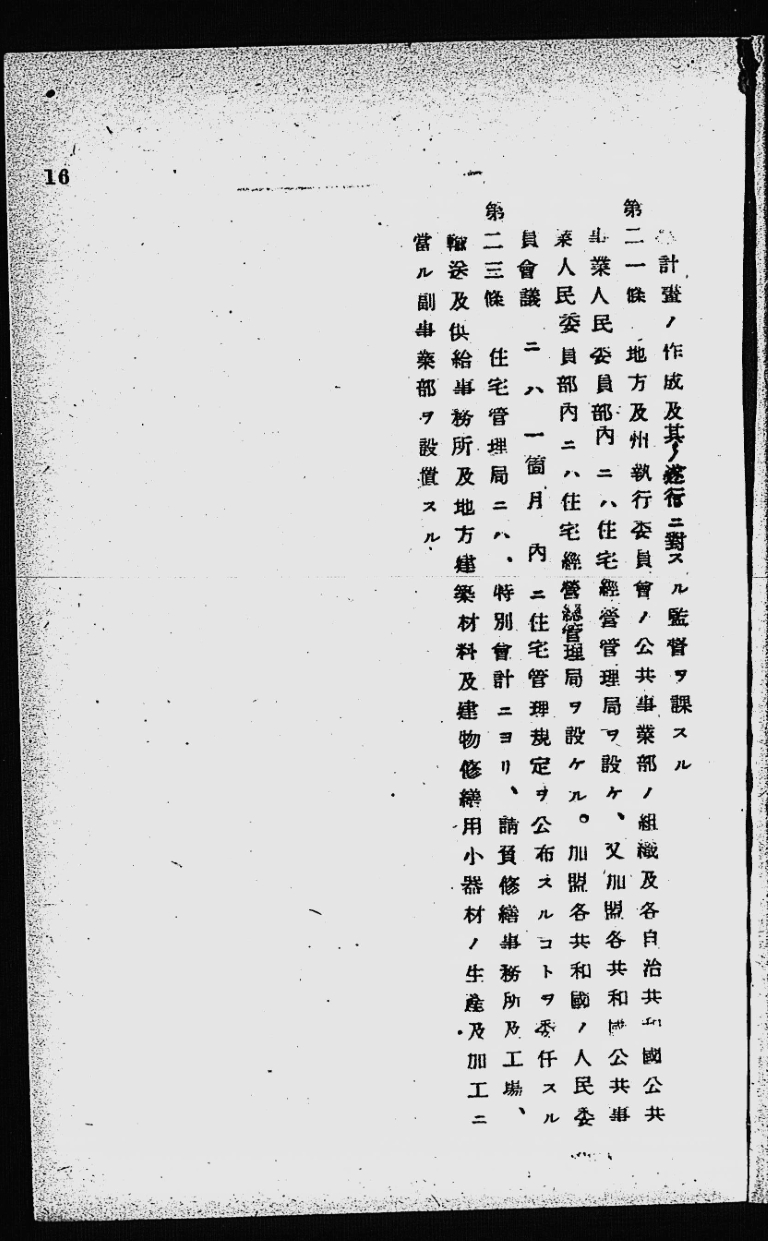 計畫ノ作成及其ノ遂行ニ對スル監督ヲ課スル
第二一條 地方及州執行委員會ノ公共事業部ノ組織及各自治共和國公共
事業人民委員部內ニハ住宅經營管理局ヲ設ケ、又加盟各共和國公共事
業人民委員部內ニハ住宅經營總管理局ヲ設ケル。加盟各共和國ノ人民委
員會議ニハ一箇月內ニ住宅管理規定ヲ公布スルコトヲ委任スル
第二三條 住宅管理局ニハ、特別會計ニヨリ、請負修繕事務所及工場、
輸送及供給事務所及地方建築材料及建物修繕用小器材ノ生産及加工ニ
當ル副事業部ヲ設置スル
16